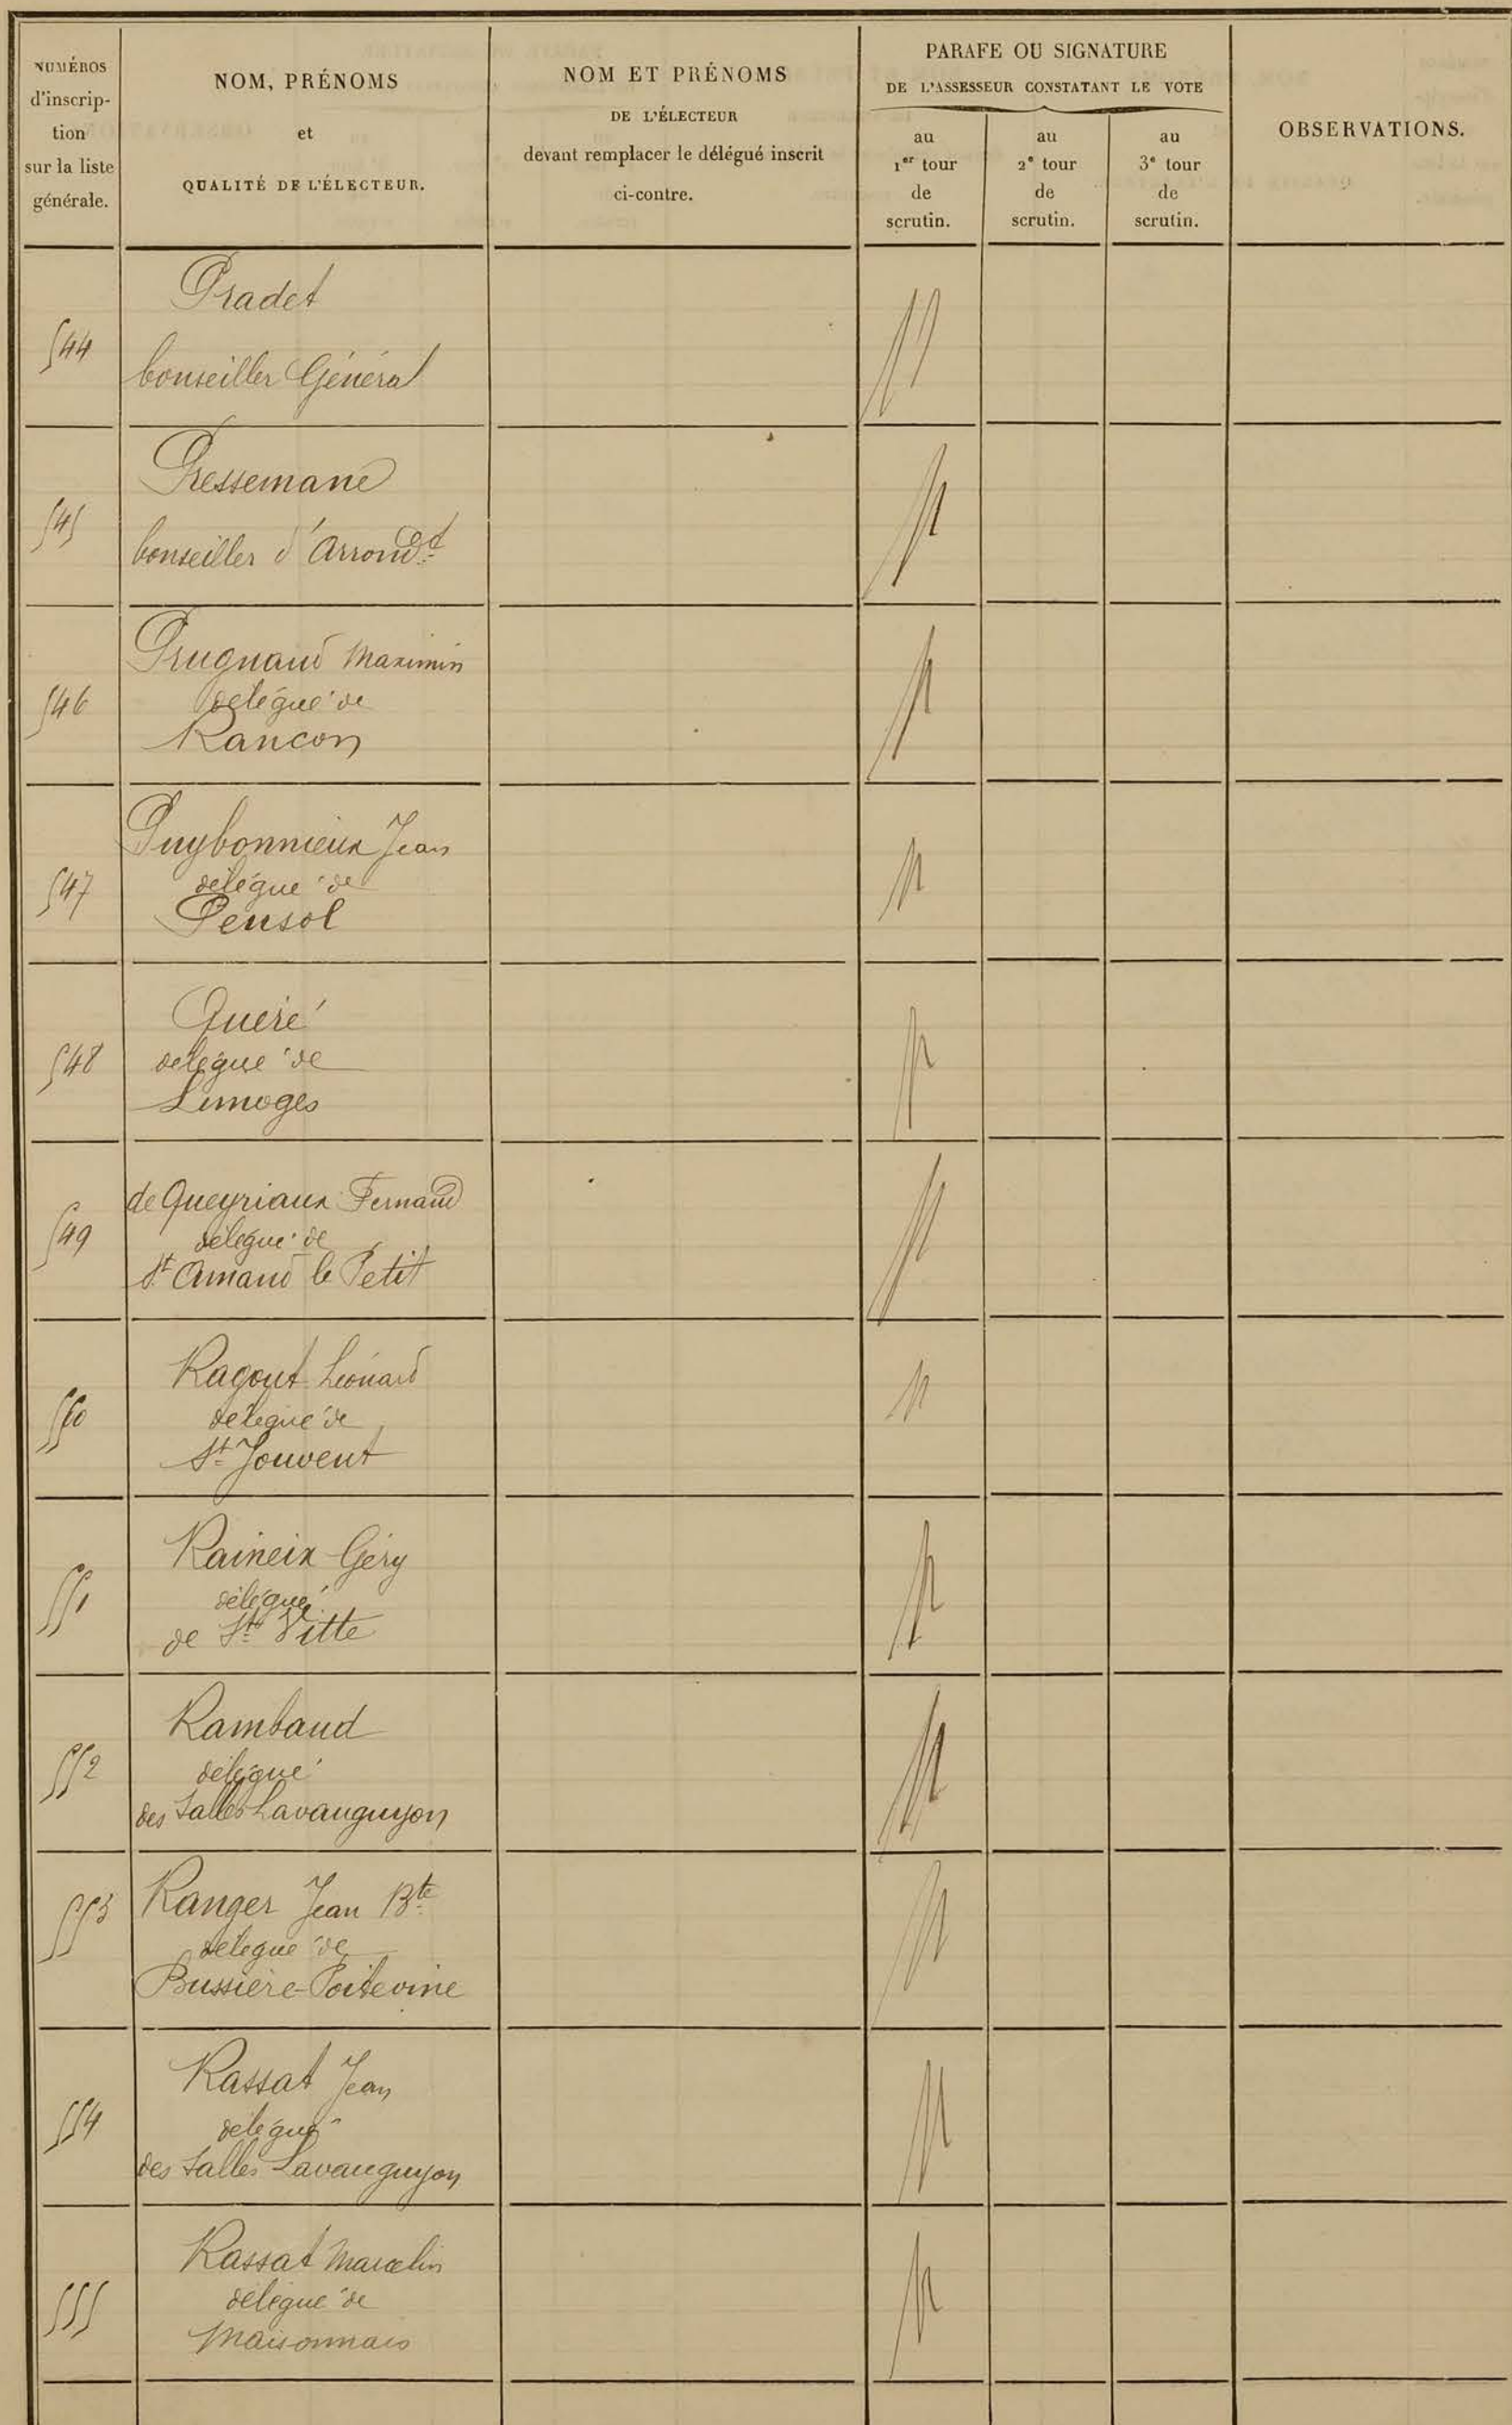 NUMÉROS
d'inscrip-
tion
sur la liste
générale.
NOM, PRÉNOMS
et
QUALITÉ DE L'ÉLECTEUR.
NOM ET PRÉNOMS
DE L'ÉLECTEUR
devant remplacer le délégué inscrit
ci-contre.
PARAFE OU SIGNATURE
DE L'ASSESSEUR CONSTATANT LE VOTE
au
1er tour
de
scrutin.
au
2e tour
de
scrutin.
au
3e tour
de
scrutin.
OBSERVATIONS.
544
Pradet
Conseiller Général
545
Pressemane
Conseiller d'Arrondt
546
Prugnaud Maximin
délégué de
Rancon
547
Puybonnieux Jean
délégué de
Pensol
548
Quéré
délégué de
Limoges
549
de Queyriaux Fernand
délégué de
St Amand le Petit
550
Ragout Léonard
délégué de
St Jouvent
551
Raineix Géry
délégué
de Ste Vitte
552
Rambaud
délégué
des Salles Lavauguyon
553
Ranger Jean Bte
délégué de
Bussière-Poitevine
554
Rassat Jean
délégué
des Salles Lavauguyon
555
Rassat Marcelin
délégué de
Maisonnais